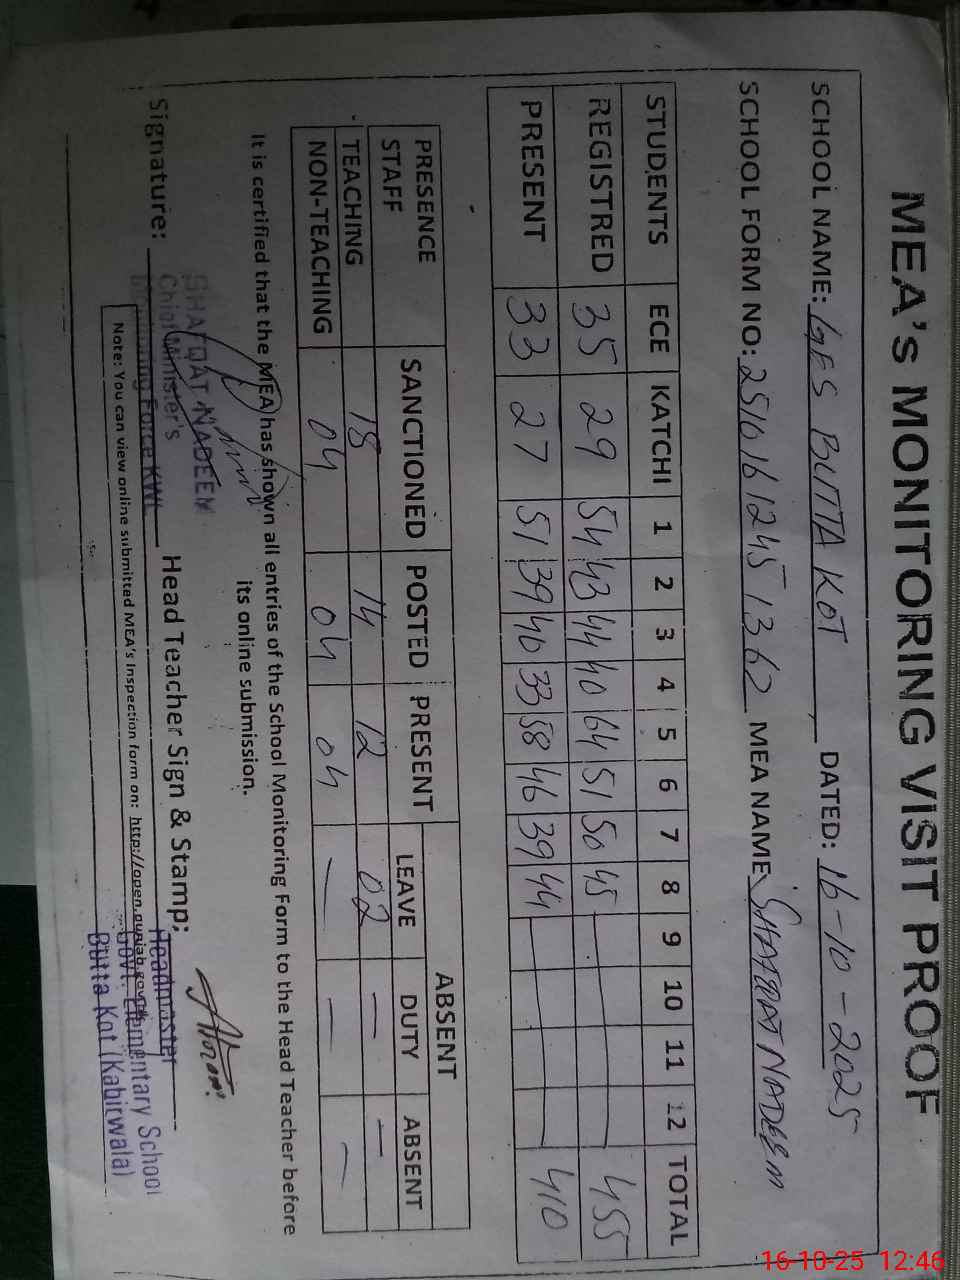 MEA's MONITORING VISIT PROOF
SCHOOL NAME: GES BUTTA KOT, DATED: 16-10-2025
SCHOOL FORM NO: 251016124513 62 MEA NAME SHAFQAT NADEEM
STUDENTS ECE KATCHI 1 2 3 4 5 6 7 8 9 10 11 12 TOTAL
REGISTRED 35 29 54 43 44 40 64 51 50 45 455
PRESENT 33 27 51 39 40 33 58 46 39 44 410
PRESENCE STAFF SANCTIONED POSTED PRESENT ABSENT
LEAVE DUTY ABSENT
TEACHING 18 14 12 02 — —
NON-TEACHING 04 04 04 — — —
It is certified that the MEA has shown all entries of the School Monitoring Form to the Head Teacher before
its online submission.
Signature: Head Teacher Sign & Stamp:
SHAFQAT NADEEM
Chief Minister's
Monitoring Force KWL
Headmaster
Govt. Elementary School
Butta Kot (Kabirwala)
Note: You can view online submitted MEA's Inspection form on: http://open.punjab.gov.pk
16-10-25 12:46